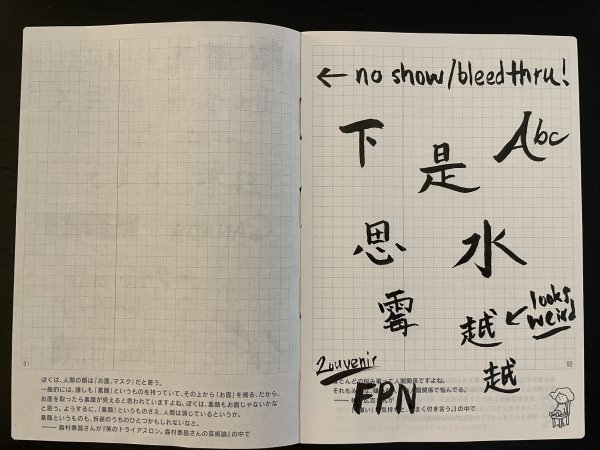 91
ぼくは、人間の顔は「お面、マスク」だと思う。
一般的には、誰しも「素顔」というものを持っていて、その上から「お面」を被る、だから、
お面を取ったら素顔が見えると思われていますよね。ぼくは、素顔もお面じゃないかな
と思う。ようするに、「素顔」というものさえ、人間は演じているというか。
素顔というものも、扮装のうちのひとつかもしれないなと。
——森村泰昌さんが『美のトライアスロン。森村泰昌さんの芸術論』の中で
← no show/bleedthru!
下 是 Abc
思 水
霉 越 ← looks weird
越
92
Zouvenir
FPN
ほとんどの悩み事って人間関係ですよね。
人間関係で悩んでる。
気持ちと、
まく付き合う』の中で